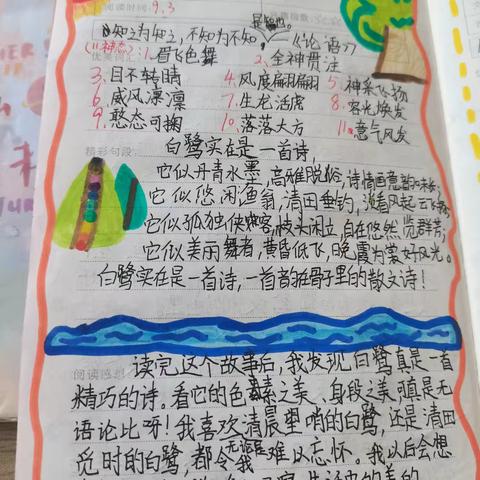 阅读时间：9.3
知之为知之，不知为不知，是知也。《论语》
(11神态) 1.眉飞色舞 2、全神贯注
3.目不转睛 4.风度翩翩 5.神采飞扬
6.威风凛凛 7.生龙活虎 8.容光焕发
9.憨态可掬 10.落落大方 11.意气风发
精彩句段：
白鹭实在是一首诗，
它似丹青水墨，高雅脱俗，诗情画意韵味长；
它似悠闲渔翁，清田垂钓，没看风起云飞扬；
它似孤独侠客，枝头闲立，自在悠然览群芳；
它似美丽舞者，黄昏低飞，晚霞为裳好风光。
白鹭实在是一首诗，一首韵在骨子里的散文诗！
读完这个故事后，我发现白鹭真是一首
阅读感想
精巧的诗。看它的色素之美、身段之美真是无
语论比呀！我喜欢清晨望哨的白鹭，还是清田
觅时的白鹭，都令我无论在难以忘怀。我以后会想